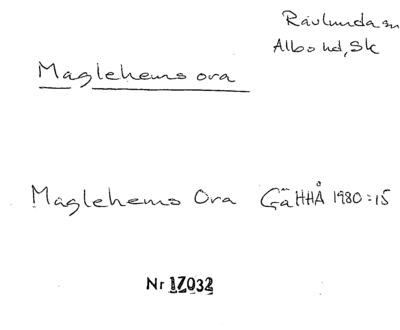 Ravlunda sn
Albo hd, Sk
Maglehems ora
Maglehems Ora GäHHÅ 1980:15
Nr 17032